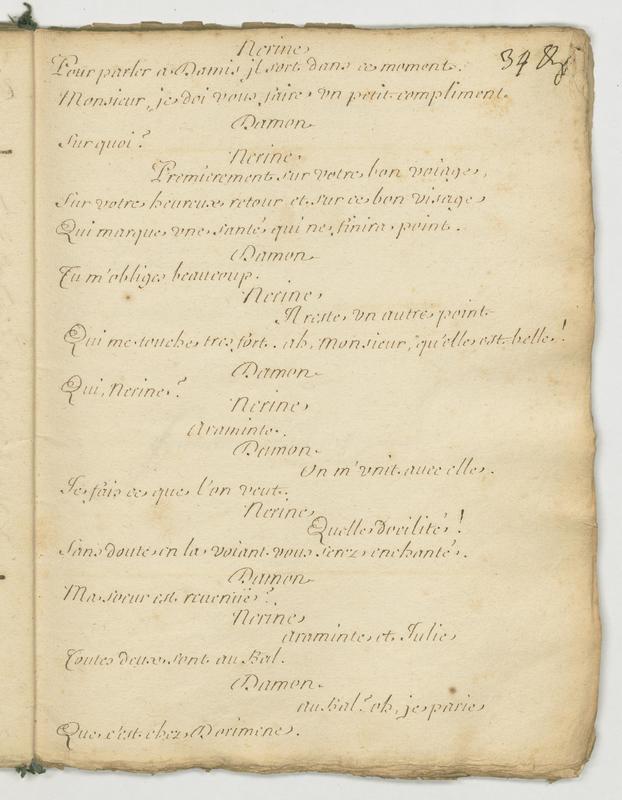 Nerine
34
Pour parler a Damis jl sort dans ce moment.
Monsieur, je doi vous faire vn petit compliment.
Damon
Sur quoi?
Nerine
Premierement sur votre bon voiage,
Sur votre heureux retour et sur ce bon visage
Qui marque vne santé qui ne finira point.
Damon
Tu m'obliges beaucoup.
Nerine
Il reste vn autre point
Qui me touche tres fort. ah, Monsieur, qu'elle est belle!
Damon
Qui, Nerine?
Nerine
Araminte.
Damon
On m'vnit avec elle.
Je fais ce que l'on veut.
Nerine
Quelle docilité!
Sans doute en la voiant vous serez enchanté.
Damon
Ma soeur est revenüe?
Nerine
Araminte et Julie
Toutes deux sont au Bal.
Damon
au Bal? oh, je parie
Que c'est chez Dorimene.